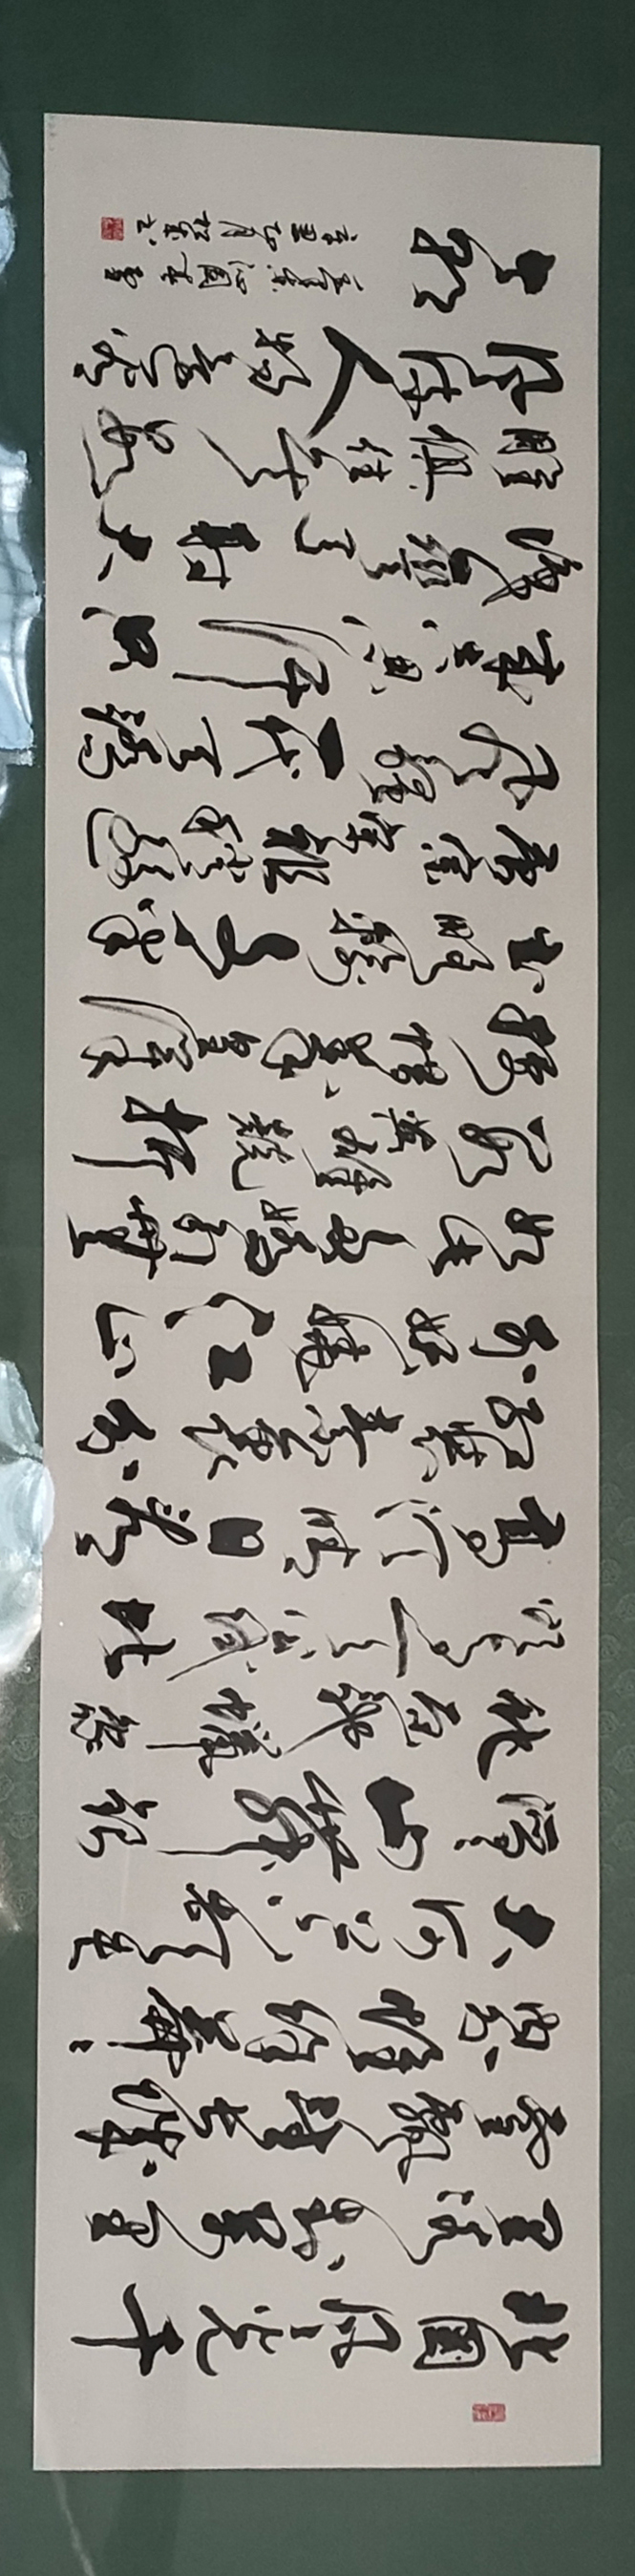 北國风光千
里冰封万里
雪飘望长城
内外惟馀莽莽
大河上下顿失
滔滔山舞银
蛇原驰蠟象
欲与天公试比
高须晴日看
红装素裹分
外妖娆江山
如此多娇引無
数英雄競折
腰惜秦皇漢
武略输文
采唐宗宋祖稍逊
风骚一代天骄
成吉思汗只
识弯弓射大
雕俱往矣数
风流人物还看
今朝
沁園春雪
辛丑